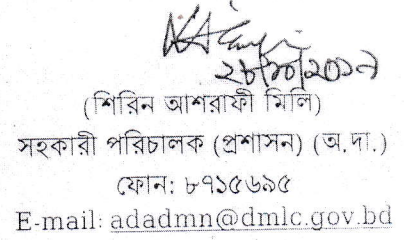 ২৮/১০/২০১৭
(শিরিন আশরাফী মিলি)
সহকারী পরিচালক (প্রশাসন) (অ.দা.)
ফোন: ৮৭১৫৬৯৫
E-mail: adadmn@dmlc.gov.bd